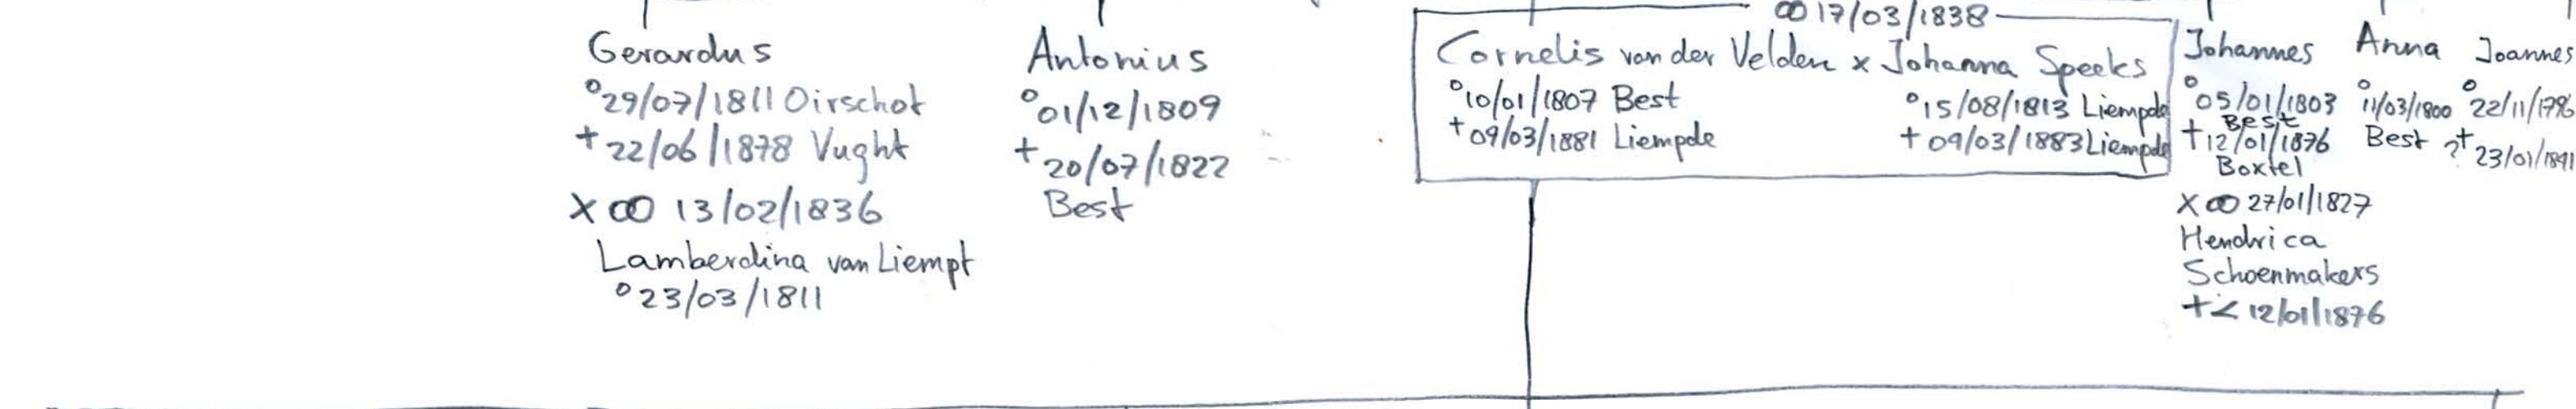 Gerardus
°29/07/1811 Oirschot
+22/06/1878 Vught
x ∞ 13/02/1836
Lamberdina van Liempt
°23/03/1811
Antonius
°01/12/1809
+20/07/1822
Best
∞ 17/03/1838
Cornelis van der Velden x Johanna Speeks
°10/01/1807 Best °15/08/1813 Liempde
+09/03/1881 Liempde +09/03/1883 Liempde
Johannes
°05/01/1803
Best
+12/01/1876
Boxtel
x ∞ 27/01/1827
Hendrica
Schoenmakers
+< 12/01/1876
Anna
°11/03/1800
Best
Joannes
°22/11/1796
?+23/01/1891